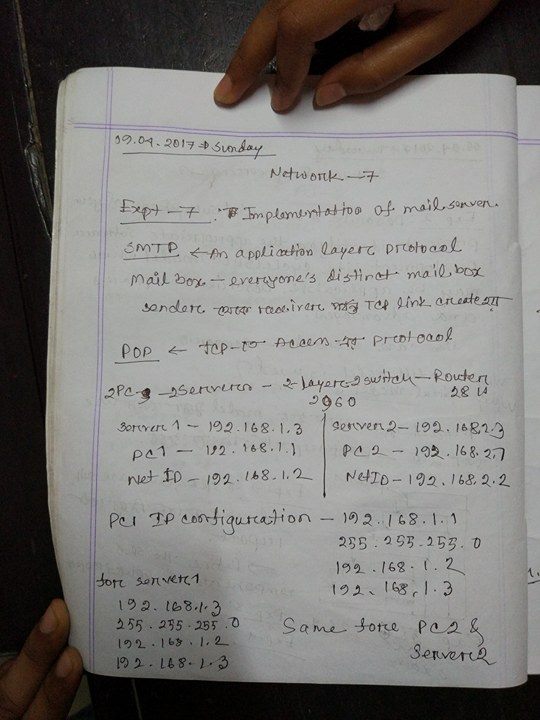 09.04.2017 → Sunday
Network - 7
Expt - 7 : Implementation of mail server.
SMTP ← An application layer protocol
Mail box - everyone's distinct mail box
sender থেকে receiver TCP link create
POP ← TCP-তে Access এর protocol
2PC - 2Server - 2-layer-2switch - Router
2960 2811
Server1 - 192.168.1.3
PC1 - 192.168.1.1
Net ID - 192.168.1.2
Server2 - 192.168.2.3
PC2 - 192.168.2.1
Net ID - 192.168.2.2
PC1 IP configuration - 192.168.1.1
255.255.255.0
192.168.1.2
192.168.1.3
for server1
192.168.1.3
255.255.255.0
192.168.1.2
192.168.1.3
Same for PC2 &
Server2